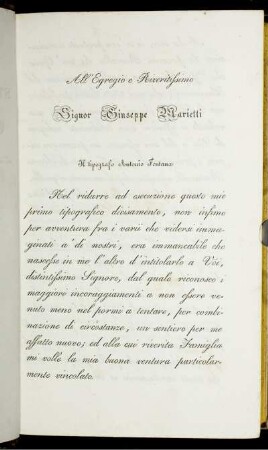 All'Egregio e Riveritissimo
Signor Giuseppe Marietti
Il tipografo Antonio Fontana
Nel ridurre ad esecuzione questo mio
primo tipografico divisamento, non infimo
per avventura fra i varii che videro immagi-
ginati a' dì nostri, era immancabile che
nascesse in me l'altro d'intitolarlo a Voi,
distintissimo Signore, dal quale riconosco i
maggiori incoraggiamenti a non essere ve-
nuto meno nel pormi a tentare, per combi-
nazione di circostanze, un sentiero per me
affatto nuovo; ed alla cui riverita Famiglia
me volle la mia buona ventura particolar-
mente vincolato.